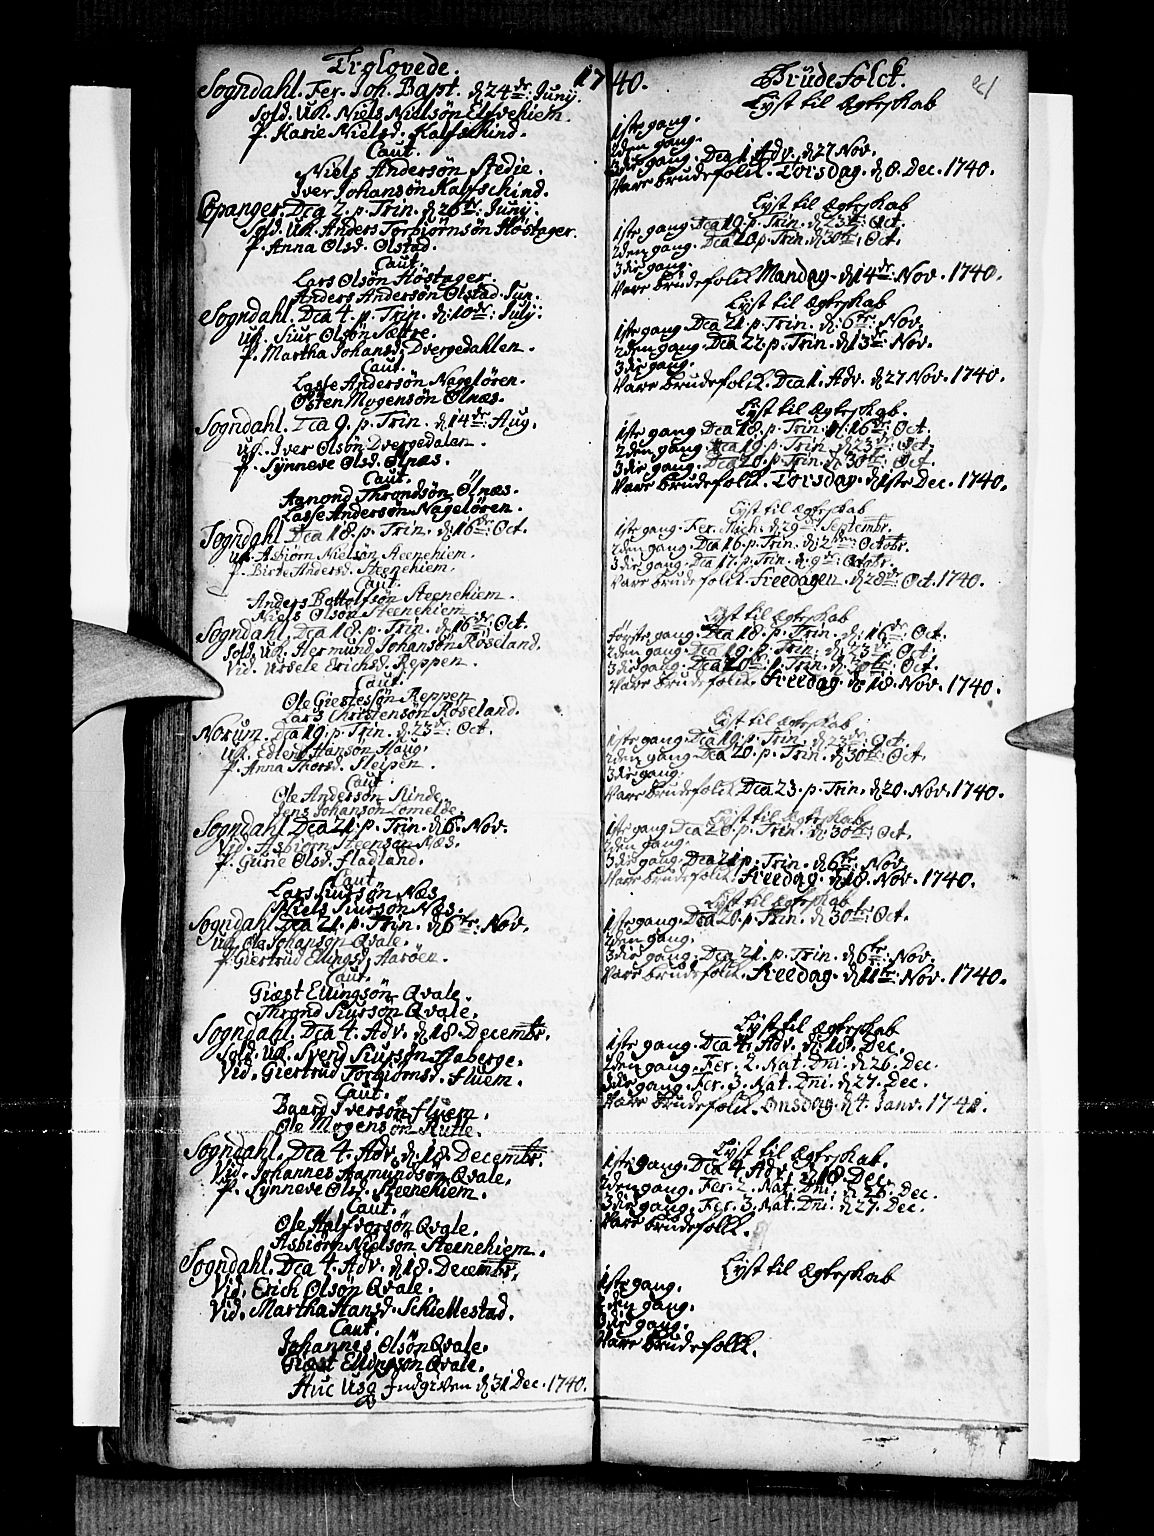 Trolovede. 1740.
Sogndahl. Fer. Joh. Bapt. d. 24de: Junij.
Sold. Uk. Niels Nielsøn Elfvehiem.
P. Karie Nielsd. Kalfschind.
Caut.
Niels Andersøn Stedie.
Iver Johansøn Kalfschind.
Copanger. Dca 2. p. Trin. d. 26de: Junij.
Sold. Uk. Anders Torbiørnsøn Høstager.
P. Anna Olsd. Ølstad.
Caut.
Lars Olsøn Høstager.
Anders Andersøn Ølstad. Jun.
Sogndahl. Dca 4. p. Trin. d. 10de: Julij.
Uk. Siur Olsøn Sættre.
P. Martha Johansd. Dvergedahlen.
Caut.
Lasse Andersøn Nageløren.
Østen Mogensøn Ølnæs.
Sogndahl. Dca 9. p. Trin. d. 14de: Aug.
Uk. Iver Olsøn Dvergedalen.
P. Synneve Olsd. Ølnæs.
Caut.
Aamond Throndsøn Ølnæs.
Lasse Andersøn Nageløren.
Sogndahl Dca 18. p. Trin. d. 16de: Oct.
Uk. Asbiørn Nielsøn Steenehiem.
P. Birte Andersd. Steenehiem.
Caut.
Anders Bottolfsøn Steenehiem.
Niels Olsøn Steenehiem.
Sogndahl. Dca 18. p. Trin. d. 16de: Oct.
Sold. Uk. Hermund Johansøn Røseland.
Vid. Ursele Erichsd. Reppen.
Caut.
Ole Giestesøn Reppen.
Lars Christensøn Røseland.
Norum. Dca 19. p. Trin. d. 23de: Oct.
Uk. Edlend Hansøn Haug.
P. Anna Thorsd. Sleipen.
Caut.
Ole Andersøn Slinde.
Jens Johansøn Lomelde.
Sogndahl. Dca 21. p. Trin. d. 6. Nov.
Vid. Asbiørn Steensøn Næs.
P. Gurie Olsd. Fladland.
Caut.
Lars Siursøn Næs.
Niels Siursøn Næs.
Sogndahl. Dca 21. p. Trin. d. 6te: Nov.
Uk. Ole Johansøn Qvale.
P. Giertrud Ellingsd. Aarøen.
Caut.
Giæst Ellingsøn Qvale.
Thrond Siursøn Qvale.
Sogndahl. Dca 4. Adv. d. 18 Decembr.
Sold. Uk. Svend Siursøn Aaberge.
Vid. Giertrud Torbiørnsd. Fluem.
Caut.
Baard Iversøn Fluem.
Ole Mogensøn Rutle.
Sogndahl. Dca 4. Adv. d. 18 Decembr.
Vid. Johannes Aamundsøn Qvale.
P. Synneve Olsd. Steenehiem.
Caut.
Ole Halfvorsøn Qvale.
Asbiørn Nielsøn Steenehiem.
Sogndahl. Dca 4. Adv. d. 18 Decembr.
Vid. Erich Olsøn Qvale.
Vid. Martha Hansd. Schiellestad.
Caut.
Johannes Olsøn Qvale.
Giæst Ellingsøn Qvale.
Huc Usq Indgiven d. 31 Dec. 1740.
Brüdefolck. 81
Lyst til Ægteskab
1ste gang.
2den gang.
3die gang. Dca 1 Adv. d. 27 Nov.
Vare brudefolck. Torsdag. d. 8. Dec. 1740.
Lyst til Ægteskab
1ste gang Dca 19. p. Trin. d. 23de: Oct.
2den gang. Dca 20. p. Trin. d. 30te: Oct.
3die gang.
Vare brudefolck Mandag. d. 14de: Nov. 1740.
Lyst til Ægteskab
1ste gang Dca 21. p. Trin. d. 6te: Nov.
2den gang. Dca 22. p. Trin. d. 13de: Nov.
3die gang.
Vare brudefolck. Dca 1. Adv. d. 27 Nov. 1740.
Lyst til Ægteskab.
1ste gang Dca 18. p. Trin. d. 16de: Oct.
2den gang. Dca 19. p. Trin. d. 23de: Oct.
3die gang. Dca 20. p. Trin. d. 30te: Oct.
Vare brudefolck. Torsdag. d. 1ste Dec. 1740.
Lyst til Ægteskab
1ste gang. Fer. Mich. d. 29de: Septembr.
2den gang. Dca 16. p. Trin. d. 2den: Octobr.
3die gang. Dca 17. p. Trin. d. 9de: Octobr.
Vare brudefolck. Freedagen. d. 28de: Oct. 1740.
Lyst til Ægteskab
Første gang. Dca 18. p. Trin. d. 16de: Oct.
2den gang. Dca 19. p. Trin. d. 23de: Oct.
3die gang. Dca 20de: p. Trin. d. 30te: Oct.
Vare brudefolck. Freedag. d. 18. Nov. 1740.
Lyst til Ægteskab
1ste gang. Dca 19. p. Trin. d. 23de: Oct.
2den gang Dca 20. p. Trin. d. 30te: Oct.
3die gang.
Vare brudefolck Dca 23. p. Trin. d. 20. Nov. 1740.
Lyst til Ægteskab
1ste gang Dca 20. p. Trin. d. 30te: Oct.
2den gang.
3die gang. Dca 21. p. Trin. d. 6te: Nov.
Vare brudefolck. Freedag. d. 18. Nov. 1740.
Lyst til Ægteskab
1ste gang. Dca 20. p. Trin. d. 30te: Oct.
2den gang.
3die gang. Dca 21. p. Trin. d. 6te: Nov.
Vare brudefolck. Freedag. d. 11te: Nov. 1740.
Lyst til Ægteskab
1ste gang. Dca 4. Adv. d. 18. Dec.
2den gang. Fer. 2. Nat. Dni. d. 26. Dec.
3die gang. Fer. 3. Nat. Dni. d. 27. Dec.
Vare brudefolck. Onsdag. d. 4. Janv. 1741.
Lyst til Ægteskab.
1ste gang. Dca 4 Adv. d. 18 Dec.
2den gang. Fer. 2. Nat. Dni. d. 26. Dec.
3die gang. Fer. 3. Nat. Dni. d. 27. Dec.
Vare brudefolck.
Lyst til Ægteskab
1ste gang.
2den gang.
3die gang.
Vare brudefolck.